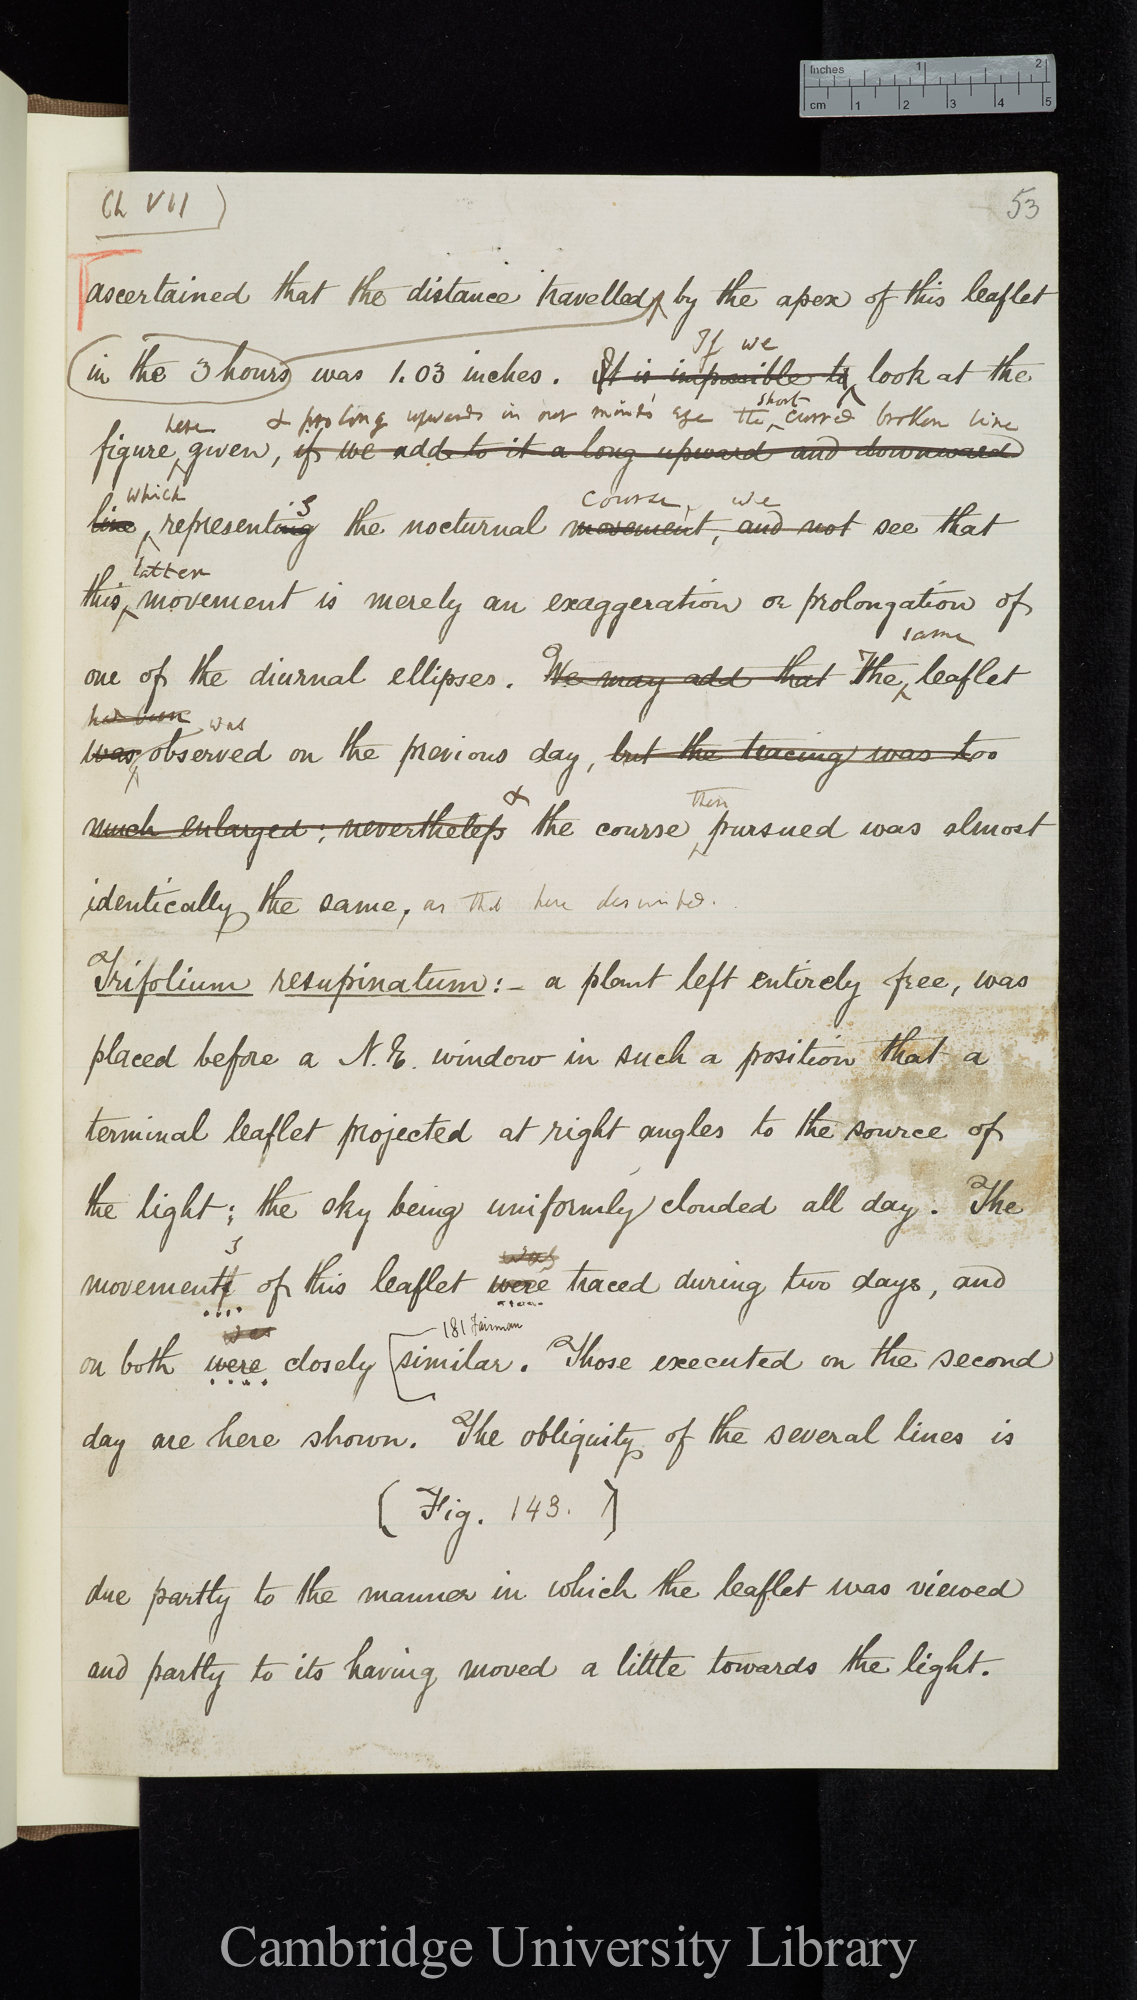 Inches 1 2
cm 1 2 3 4 5
Ch VII 53
ascertained that the distance travelled by the apex of this leaflet
If we
in the 3 hours was 1.03 inches. It is impossible to look at the
here & prolong upwards in our mind's eye the short curved broken line
figure given, if we add to it a long upward and downward
which s course, we
line representing the nocturnal movement, and not see that
latter
this movement is merely an exaggeration or prolongation of
same
one of the diurnal ellipses. We may add that The leaflet
had been was
was observed on the previous day, but the tracing was too
& then
much enlarged; nevertheless the course pursued was almost
identically the same, as that here described.
Trifolium resupinatum:- a plant left entirely free, was
placed before a N.E. window in such a position that a
terminal leaflet projected at right angles to the source of
the light; the sky being uniformly clouded all day. The
s was
movements of this leaflet were traced during two days, and
was 181 Fairman
on both were closely similar. Those executed on the second
day are here shown. The obliquity of the several lines is
(Fig. 143.)
due partly to the manner in which the leaflet was viewed
and partly to its having moved a little towards the light.
Cambridge University Library